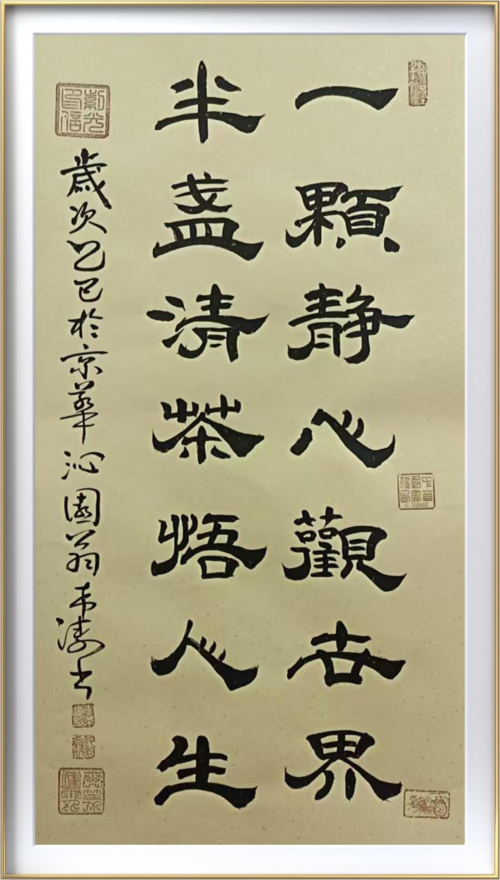 一顆靜心觀世界
半盞清茶悟人生
歲次乙巳於京華沁園翁韦涛书